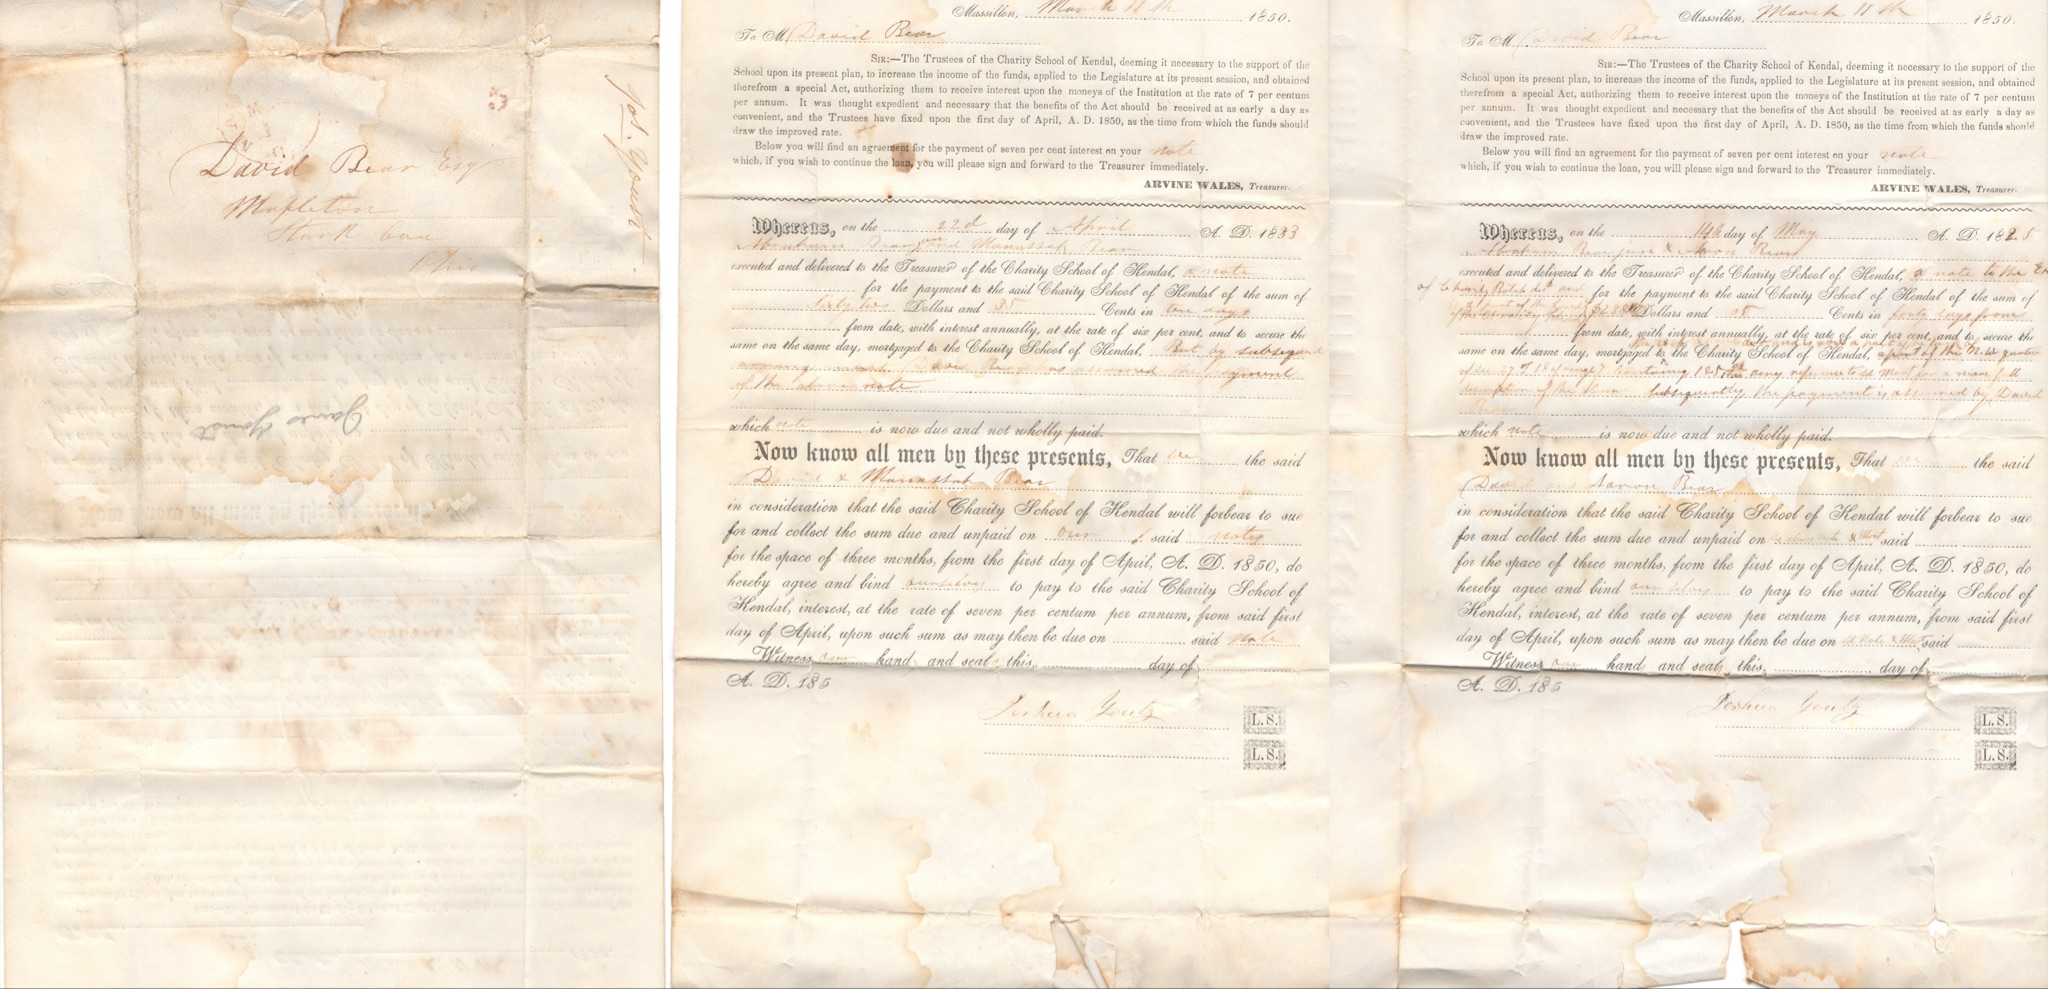 David Bear Esq
Mapleton
Stark Cou
Ohio
Jos. Yount
James Yount
Massillon, March 11th 1850.
To Mr David Bear
SIR:—The Trustees of the Charity School of Kendal, deeming it necessary to the support of the
School upon its present plan, to increase the income of the funds, applied to the Legislature at its present session, and obtained
therefrom a special Act, authorizing them to receive interest upon the moneys of the Institution at the rate of 7 per centum
per annum. It was thought expedient and necessary that the benefits of the Act should be received at as early a day as
convenient, and the Trustees have fixed upon the first day of April, A. D. 1850, as the time from which the funds should
draw the improved rate.
Below you will find an agreement for the payment of seven per cent interest on your note
which, if you wish to continue the loan, you will please sign and forward to the Treasurer immediately.
ARVINE WALES, Treasurer.
Whereas, on the 22d day of April A. D. 1833
Abraham Bear and Manassah Bear
executed and delivered to the Treasurer of the Charity School of Kendal, a note
for the payment to the said Charity School of Kendal of the sum of
Sixty two Dollars and 35 Cents in one days
from date, with interest annually, at the rate of six per cent, and to secure the
same on the same day, mortgaged to the Charity School of Kendal, But by subsequent
David Bear has assumed the payment
of the above note
which note is now due and not wholly paid.
Now know all men by these presents, That we the said
David & Manassah Bear
in consideration that the said Charity School of Kendal will forbear to sue
for and collect the sum due and unpaid on our said note
for the space of three months, from the first day of April, A. D. 1850, do
hereby agree and bind ourselves to pay to the said Charity School of
Kendal, interest, at the rate of seven per centum per annum, from said first
day of April, upon such sum as may then be due on said note
Witness our hands and seals this day of
A. D. 185
Joshua Yontz
L. S.
L. S.
Massillon, March 11th 1850.
To Mr David Bear
SIR:—The Trustees of the Charity School of Kendal, deeming it necessary to the support of the
School upon its present plan, to increase the income of the funds, applied to the Legislature at its present session, and obtained
therefrom a special Act, authorizing them to receive interest upon the moneys of the Institution at the rate of 7 per centum
per annum. It was thought expedient and necessary that the benefits of the Act should be received at as early a day as
convenient, and the Trustees have fixed upon the first day of April, A. D. 1850, as the time from which the funds should
draw the improved rate.
Below you will find an agreement for the payment of seven per cent interest on your note
which, if you wish to continue the loan, you will please sign and forward to the Treasurer immediately.
ARVINE WALES, Treasurer.
Whereas, on the 14th day of May A. D. 1825
Abraham Bear & Aaron Bear
executed and delivered to the Treasurer of the Charity School of Kendal, a note to the
of for the payment to the said Charity School of Kendal of the sum of
Dollars and Cents in forty days from
from date, with interest annually, at the rate of six per cent, and to secure the
same on the same day, mortgaged to the Charity School of Kendal, a part of the N.W quarter
of reference to sd Mort for a more full
description of the Subsequently the payment is assumed by David
Bear
which note is now due and not wholly paid.
Now know all men by these presents, That we the said
David and Aaron Bear
in consideration that the said Charity School of Kendal will forbear to sue
for and collect the sum due and unpaid on said
for the space of three months, from the first day of April, A. D. 1850, do
hereby agree and bind ourselves to pay to the said Charity School of
Kendal, interest, at the rate of seven per centum per annum, from said first
day of April, upon such sum as may then be due on sd Note & Mort said
Witness our hands and seals this day of
A. D. 185
Joshua Yontz
L. S.
L. S.